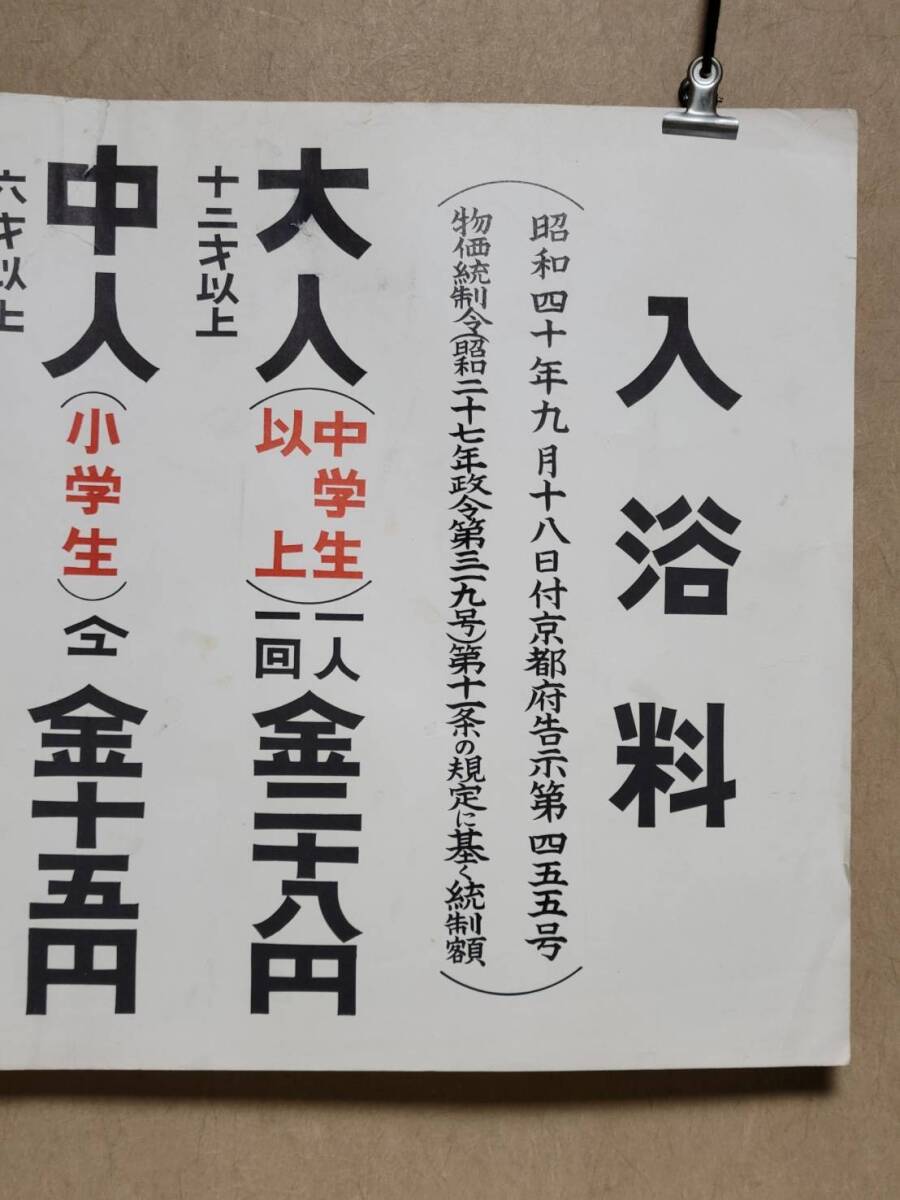 入浴料
(昭和四十年九月十八日付京都府告示第四五五号
物価統制令(昭和二十七年政令第三一九号)第十一条の規定に基く統制額)
大人(中学生以上)一人一回金二十八円
十二才以上
中人(小学生)仝金十五円
六才以上